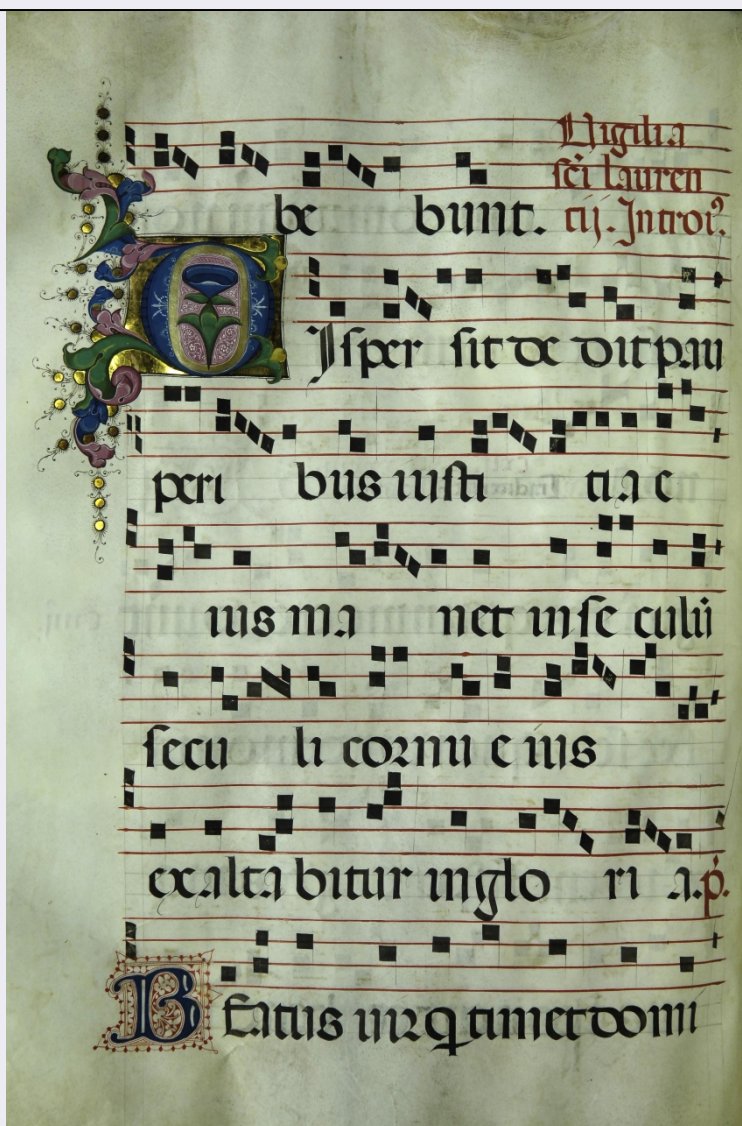 be bunt.
Uigilia
sc̄i lauren
tij. Introiꝰ.
DIsper sit de dit pau
peri bus iusti tia e
ius ma net in se culū
seculi cornu e ius
exalta bitur in glo ri a. p̄.
BEatus uir q timet domi